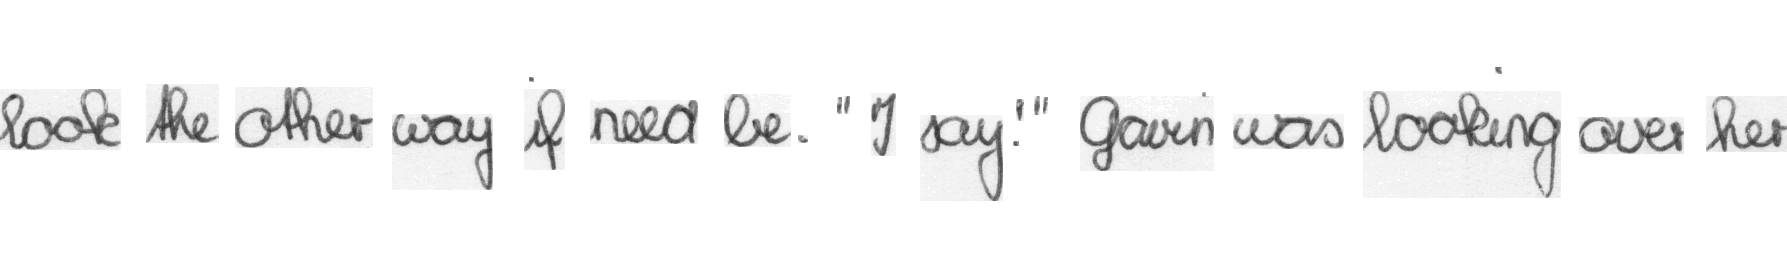 look the other way if need be. "I say!" Gavin was looking over her